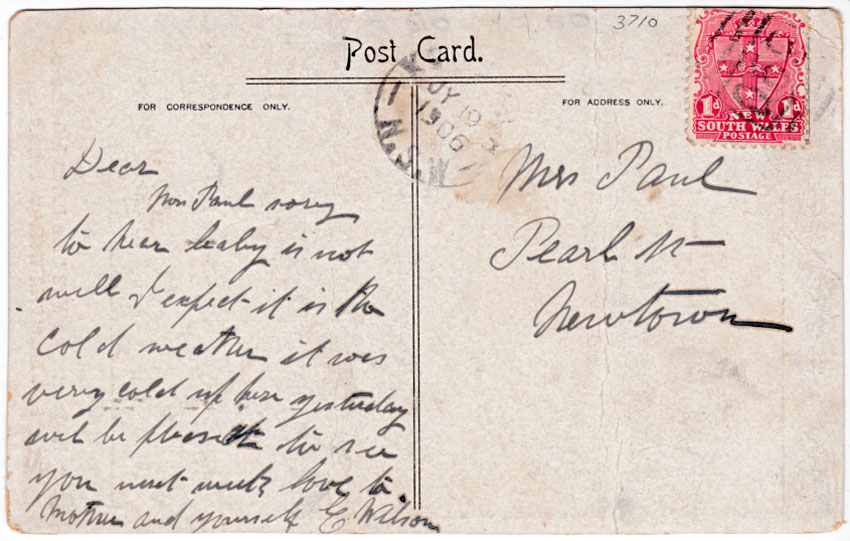 3710
Post Card.
FOR CORRESPONDENCE ONLY.
FOR ADDRESS ONLY.
JY 10
1906
N.S.W
1d 1d
NEW
SOUTH WALES
POSTAGE
Dear
Mrs Paul sorry
to hear baby is not
well I expect it is the
cold weather it was
very cold up here yesterday
will be pleased to see
you next week love to
Mother and yourself E Wilson
Mrs Paul
Pearl St
Newtown